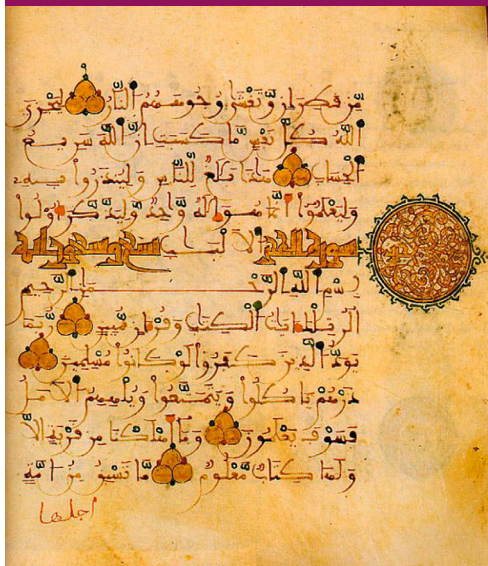 مّن قطران وّتغشى وجوههم النّار ليجزي
اللّه كلّ نفس مّا كسبت إنّ اللّه سريع
الحساب هذا بلغ لّلنّاس ولينذروا به
وليعلموا أنّما هو إله وّحد وّليذّكّر أولوا
سورة الحجر الالبب تسع وتسعون اية
بسم اللّه الرّحمن الرّحيم
الر تلك ايت الكتب وقرءان مّبين رّبما
يودّ الّذين كفروا لو كانوا مسلمين
ذرهم ياكلوا ويتمتّعوا ويلههم الامل
فسوف يعلمون وما أهلكنا من قرية الّا
ولها كتاب مّعلوم مّا تسبق من امّة
اجلها